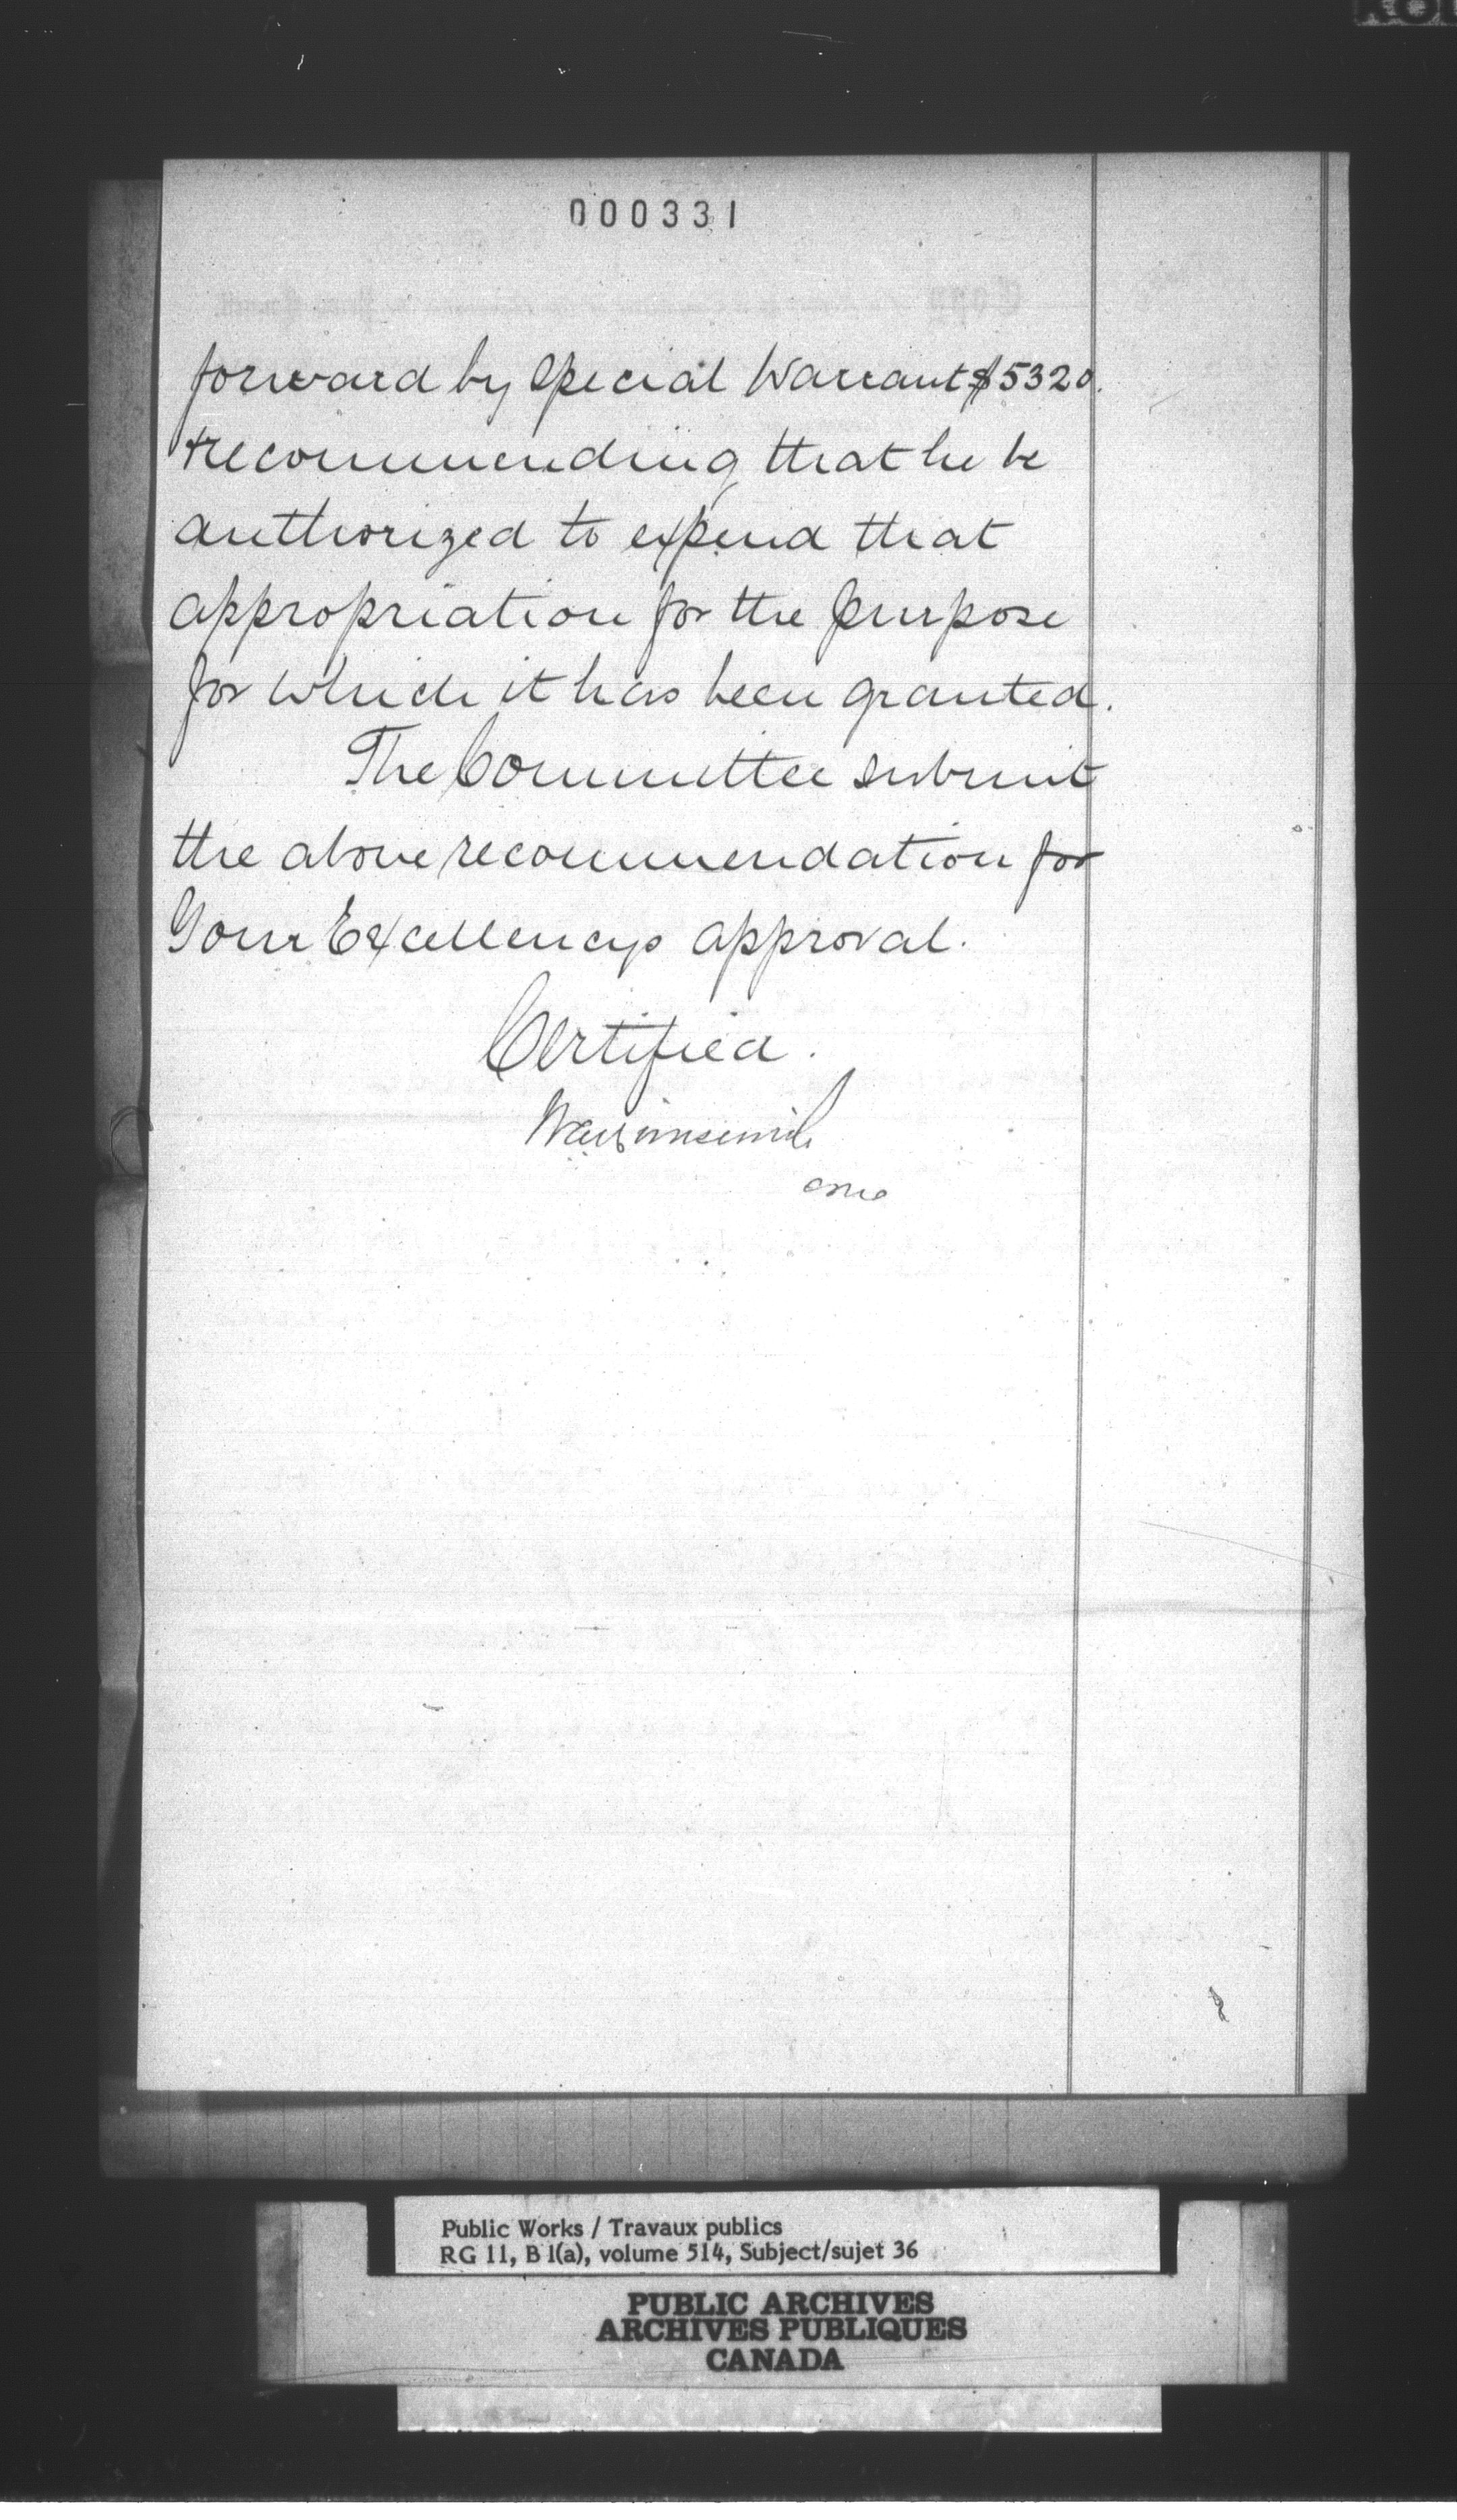 000331
forward by Special Warrant $5320.
& recommending that he be
authorized to expend that
appropriation for the purpose
for which it has been granted.
The Committee submit
the above recommendation for
Your Excellencys approval.
Certified.
Public Works / Travaux publics
RG 11, B 1(a), volume 514, Subject/sujet 36
PUBLIC ARCHIVES
ARCHIVES PUBLIQUES
CANADA